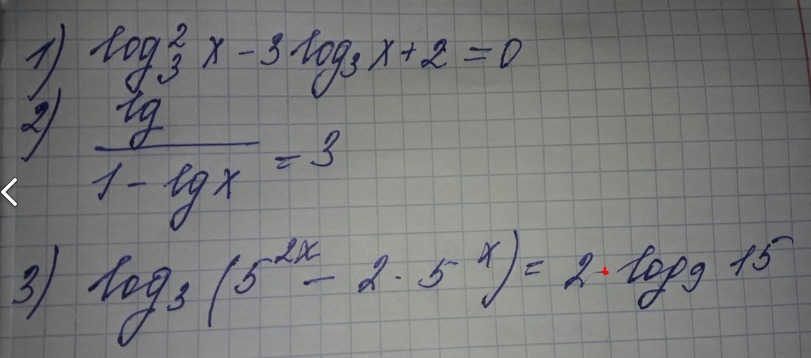 1) log₃² x - 3 log₃ x + 2 = 0
2) lg / 1 - lg x = 3
3) log₃ (5^2x - 2 · 5^x) = 2 · log₉ 15